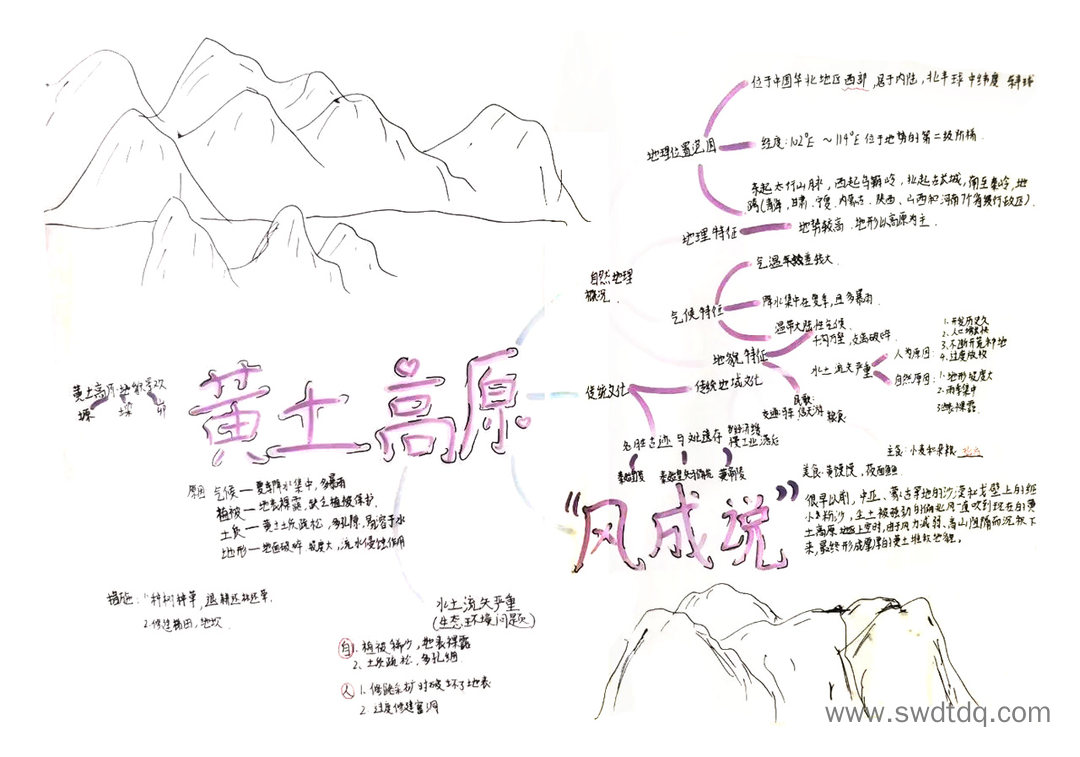 位于中国华北地区西部，居于内陆，北半球中纬度
地理位置范围
经度：102°E ～114°E 位于地势的第二级阶梯．
东起太行山脉，西起乌鞘岭，北起古长城，南至秦岭，地
跨(青海，甘肃、宁夏、内蒙古、陕西、山西和河南7个省级行政区)．
地理特征
地势较高，地形以高原为主．
自然地理
概况．
气候特征
气温年较差较大．
降水集中在夏季，且多暴雨．
温带大陆性气候．
地貌特征
千沟万壑，支离破碎．
水土流失严重
人为原因：
1.开发历史久
2.人口增长快
3.不断开荒种地
4.过度放牧
自然原因：
1.地形坡度大
2.雨季集中
3.地表裸露．
传统文化
传统地域文化
民歌：
名胜古迹与文化遗存
黄土高原地貌
塬
梁
峁
黄土高原
原因 气候—夏季降水集中，多暴雨
植被—地表裸露，缺乏植被保护
土质—黄土土质疏松，多孔隙，易溶于水
地形—地面破碎 坡度大，流水侵蚀作用
措施．1.种树种草，退耕还林还草．
2.修建梯田，地坎．
水土流失严重
(生态环境问题)
自 1. 植被稀少，地表裸露
2. 土质疏松，多孔细
人 1. 修路采矿时破坏了地表
2. 过度修建窑洞
主食：小麦和杂粮
美食：黄馍馍，
“风成说”
很早以前，中亚、蒙古等地的沙漠和戈壁上的细
小粉沙，尘土被强劲的偏北风一直吹到现在的黄
土高原地区上空时，由于风力减弱、高山阻隔而沉积下
来，最终形成厚厚的黄土堆积地貌．
www.swdtdq.com